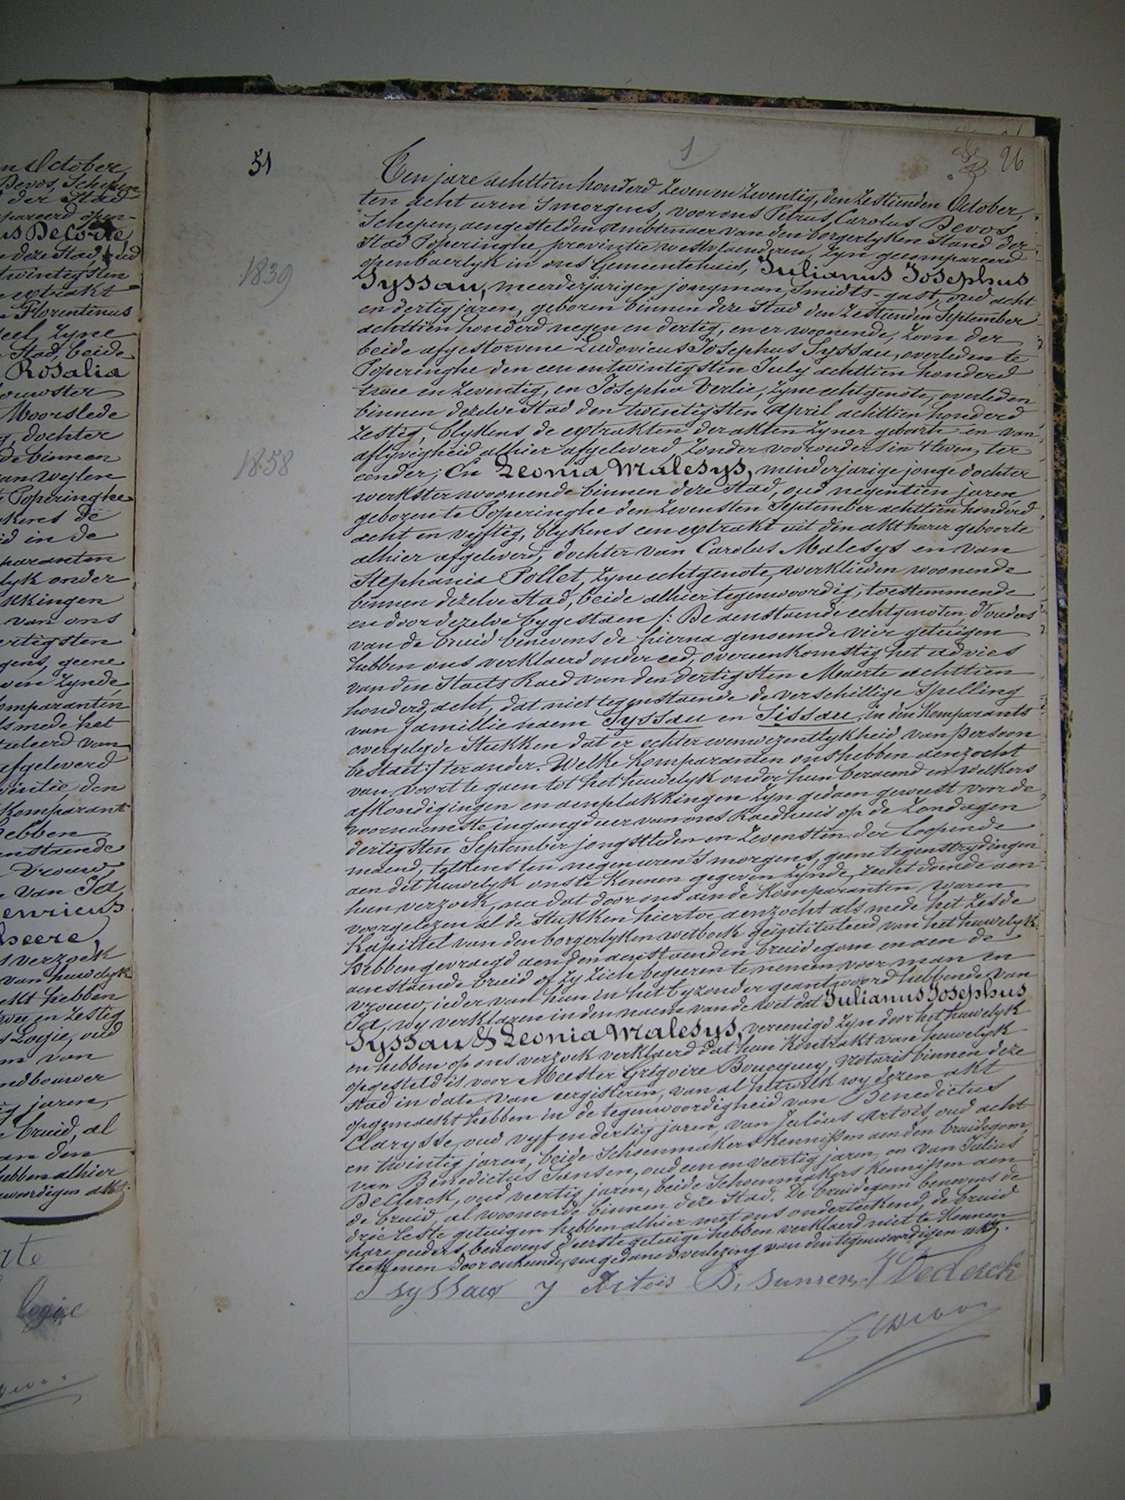 51
1
26
1839
1858
Ten jare achttien honderd zeven en zeventig, den zestienden October,
ten acht uren s'morgens, voor ons Petrus Carolus Devos
Schepen, aengestelden ambtenaer van den borgerlyken Stand der
Stad Poperinghe, provintie westvlaenderen, Zyn gecompareerd
openbaerlyk in ons Gemeentehuis, Julianus Josephus
Syssau, meerderjarigen jongman, Smidts-gast, oud acht
en dertig jaren, geboren binnen deze Stad den zestienden September
achttien honderd negen en dertig, en er woonende, Zoon der
beide afgestorvene Ludovicus Josephus Syssau, overleden te
Poperinghe den een en twintigsten July achttien honderd
twee en zeventig, en Josepha Verlie, zyne echtgenote, overleden
binnen dezelve Stad den twintigsten April achttien honderd
zestig, blykens de extrakten der akten zyner geboorte en van
aflyvigheid alhier afgeleverd zonder voorouders in 't leven, ter
eender; En Leonia Malesys, minderjarige jonge dochter
werkster woonende binnen deze Stad, oud negentien jaren,
geboren te Poperinghe den zevensten September achttien honderd
acht en vyftig, blykens een extrakt uit den akt harer geboorte
alhier afgeleverd, dochter van Carolus Malesys en van
Stephania Pollet, Zyne echtgenote, werklieden woonende
binnen dezelve Stad, beide alhier tegenwoordig, toestemmende
en door dezelve bygestaen /: De aenstaende echtgenoten, d'ouders
van de bruid benevens de hierna genoemde vier getuigen
hebben ons verklaerd onder eed, overeenkomstig het advies
van den Staets Raed van den dertigsten Maerte achttien
honderd acht, dat niet tegenstaende de verschillige Spelling
van familienaem Syssau en Sissau, in den Komparants
overgelegde Stukken dat er echter eenwezentlykheid van persoon
bestaet :/ ter ander. Welke Komparanten ons hebben aenzocht
van voort te gaen tot het huwelyk onder hun beraemd en welkers
afkondigingen en aenplakkingen Zyn gedaen geweest voor de
voornaemste ingangdeur van ons Raedhuis op de Zondagen
dertigsten September jongstleden en Zevensten der loopende
maend, telkens ten negen uren s'morgens, geene tegenstrydingen
aen dit huwelyk ons te kennen gegeven zynde, recht doende aen
hun verzoek, na dat door ons aende Komparanten waren
voorgelezen al de Stukken hiertoe aenzocht als mede het zesde
Kapittel van den borgerlyken wetboek geïntituleerd van het huwelyk
hebben gevraegd aen den aenstaenden bruidegom en aen de
aenstaende bruid of zy zich begeeren te nemen voor man en
vrouw, ieder van hun in het byzonder geantwoord hebbende van
Ja, wy verklaren in den naeme van de wet dat Julianus Josephus
Syssau & Leonia Malesys, vereenigd zyn door het huwelyk
en hebben op ons verzoek verklaerd dat hun Kontrakt van huwelyk
opgesteld is voor Meester Grégoire Boucquey, notaris binnen deze
Stad in date van eergisteren, van al het welk wy dezen akt
opgemaekt hebben in de tegenwoordigheid van Benedictus
Clarysse, oud vyf en dertig jaren, van Julius Artois, oud acht
en twintig jaren, beide Schoenmakers Kennissen aen den bruidegom,
van Benedictus Sansen, oud een en veertig jaren, en van Julius
Declerck, oud veertig jaren, beide Schoenmakers Kennissen aen
de bruid, al woonende binnen deze Stad. De bruidegom benevens de
drie leste getuigen hebben alhier met ons onderteekend, de bruid
hare ouders, benevens d'eerste getuige hebben verklaerd niet te kunnen
teekenen door onkunde, na gedane overlezing van den tegenwoordigen akt.
J Syssau J Artois B. Sansen J Declerck